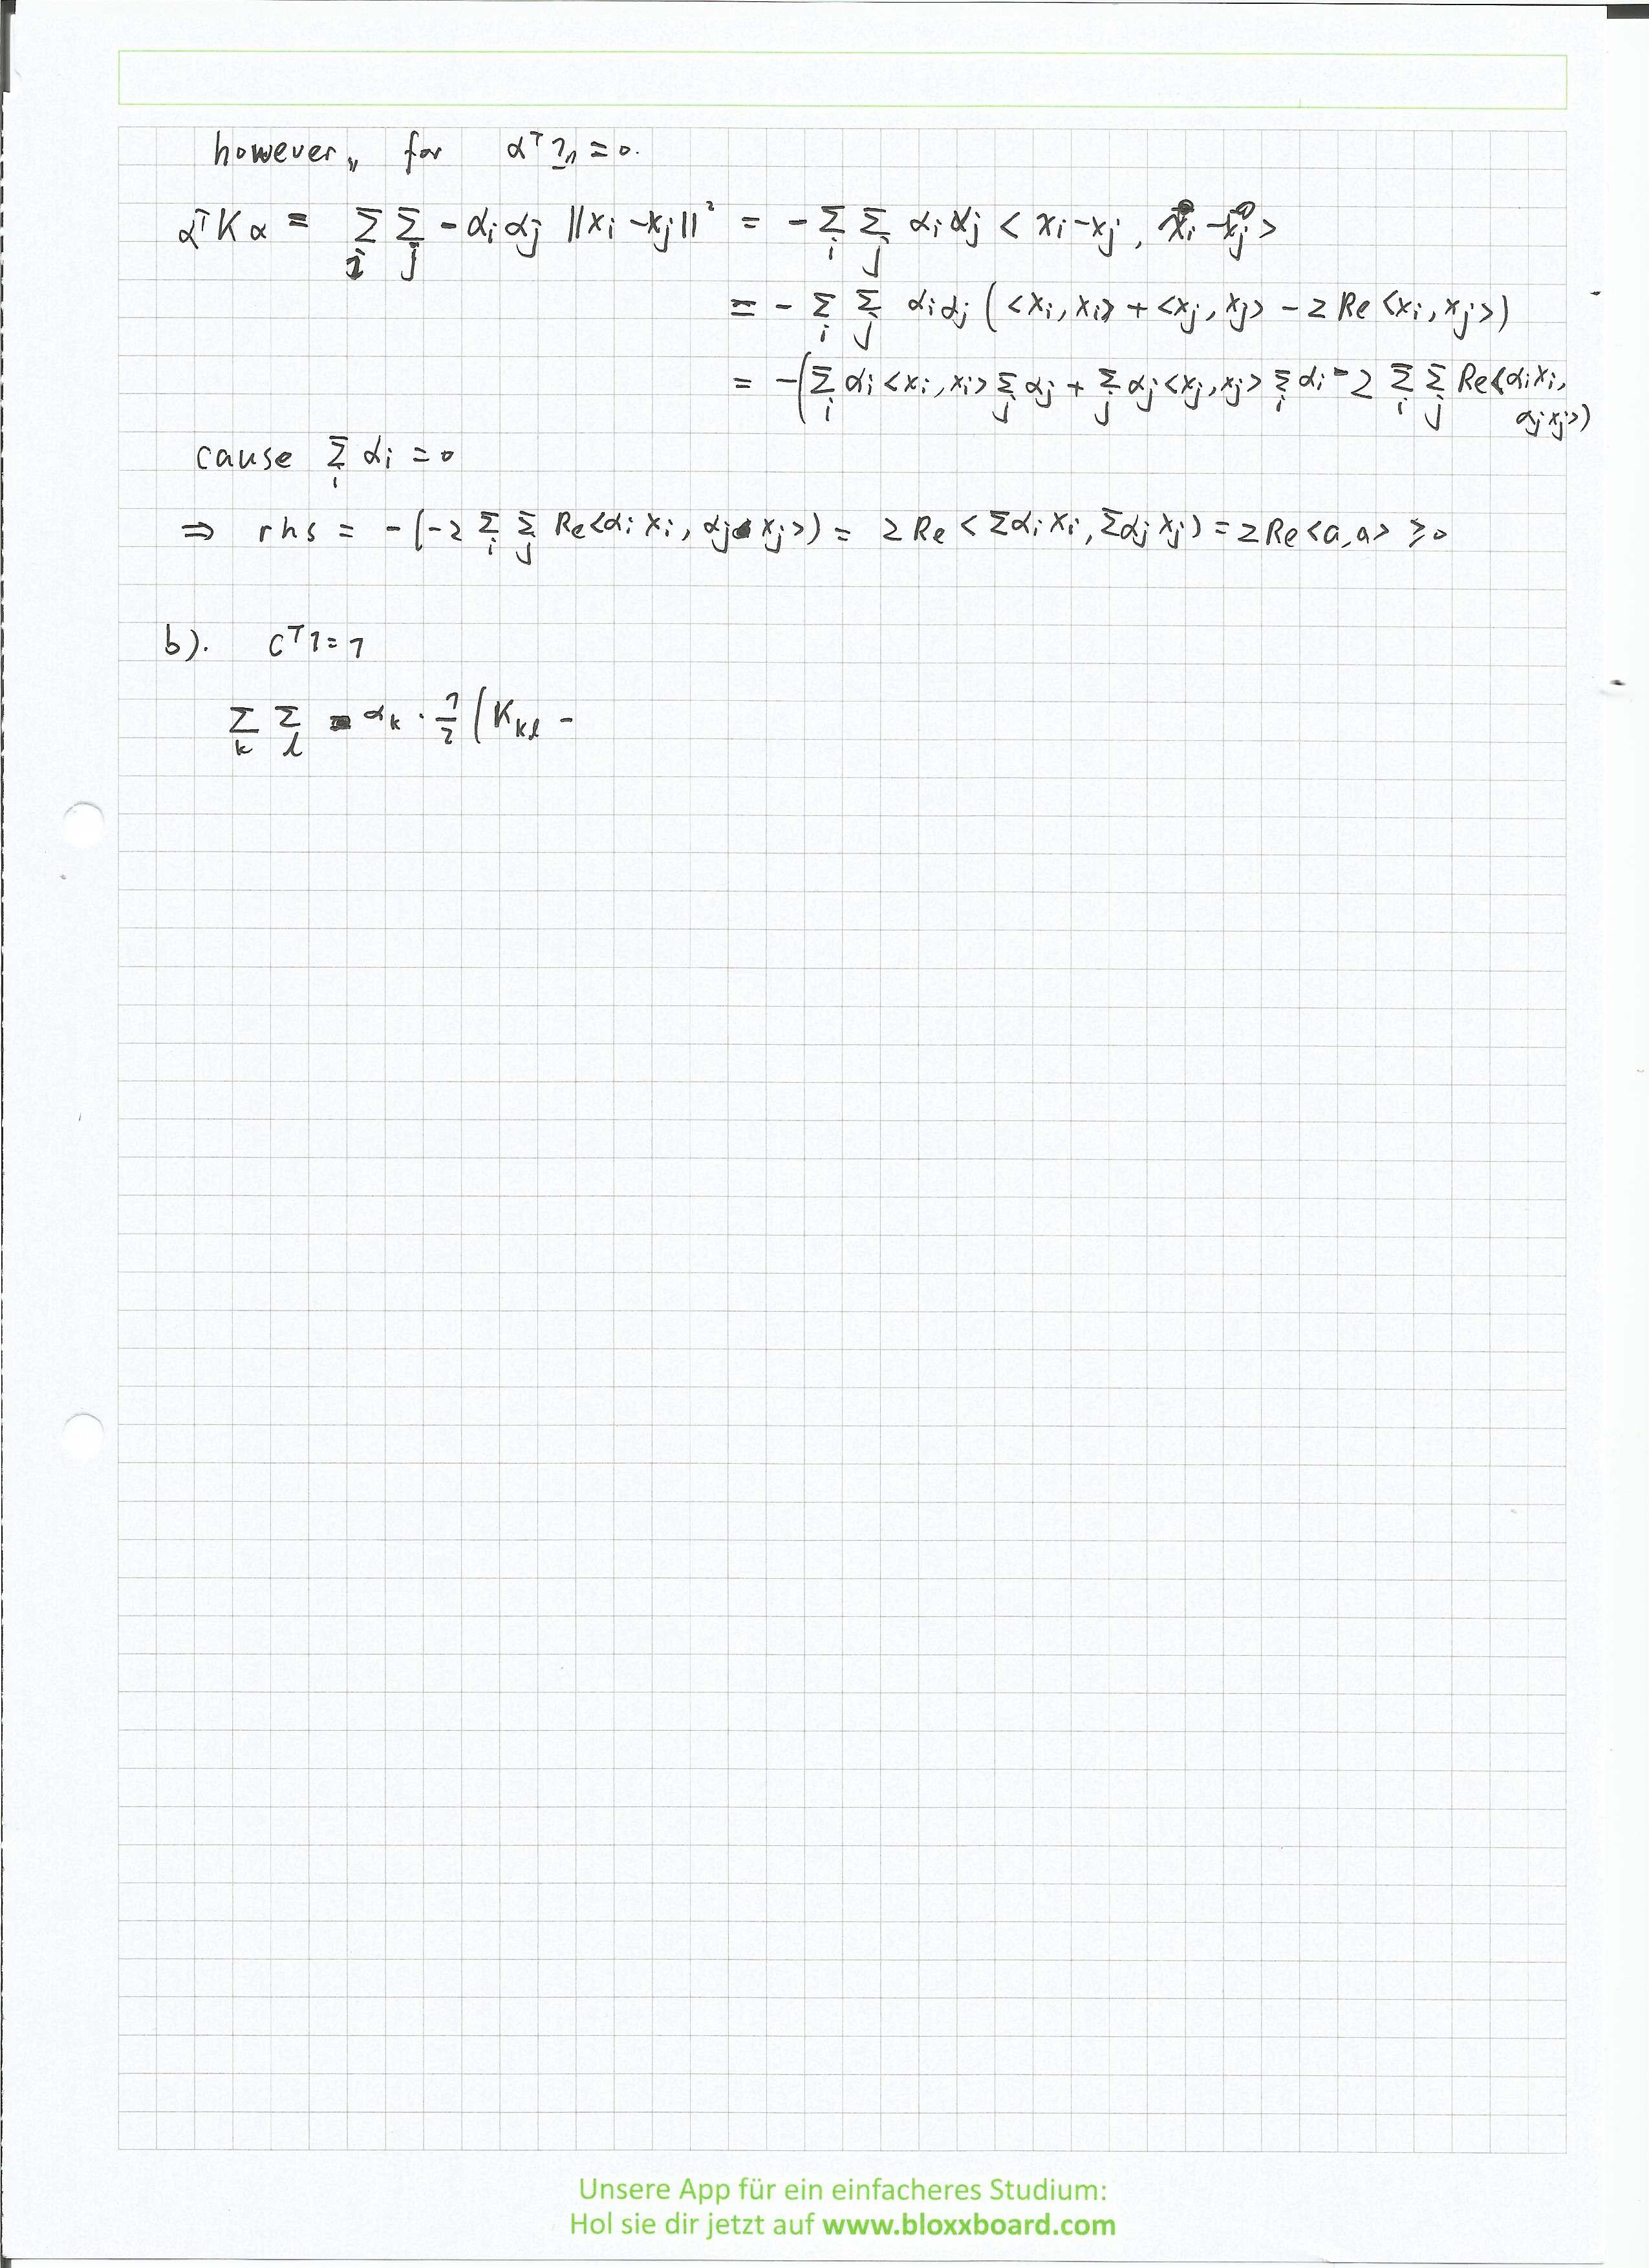 however,, for α^T 1_n = 0.
α^T K α = Σ_i Σ_j - α_i α_j ||x_i - x_j||² = - Σ_i Σ_j α_i α_j < x_i - x_j, x_i - x_j >
= - Σ_i Σ_j α_i α_j ( <x_i, x_i> + <x_j, x_j> - 2 Re <x_i, x_j> )
= - ( Σ_i α_i <x_i, x_i> Σ_j α_j + Σ_j α_j <x_j, x_j> Σ_i α_i - 2 Σ_i Σ_j Re <α_i x_i,
α_j x_j> )
cause Σ_i α_i = 0
⇒ rhs = - ( -2 Σ_i Σ_j Re <α_i x_i, α_j x_j> ) = 2 Re < Σ α_i x_i, Σ α_j x_j ) = 2 Re <a, a> ≥ 0
b). C^T 1 = 1
Σ_k Σ_l α_k · 1/2 ( K_kl -
Unsere App für ein einfacheres Studium:
Hol sie dir jetzt auf www.bloxxboard.com